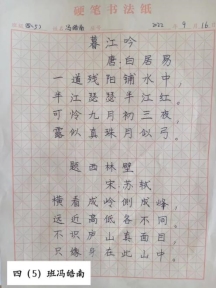 硬笔书法纸
四(5) 冯皓南 2022 年 9 月 16
暮江吟
唐:白居易
一道残阳铺水中,
半江瑟瑟半江红。
可怜九月初三夜,
露似真珠月似弓。
题西林壁
宋:苏轼
横看成岭侧成峰,
远近高低各不同。
不识庐山真面目,
只缘身在此山中。
四(5)班冯皓南